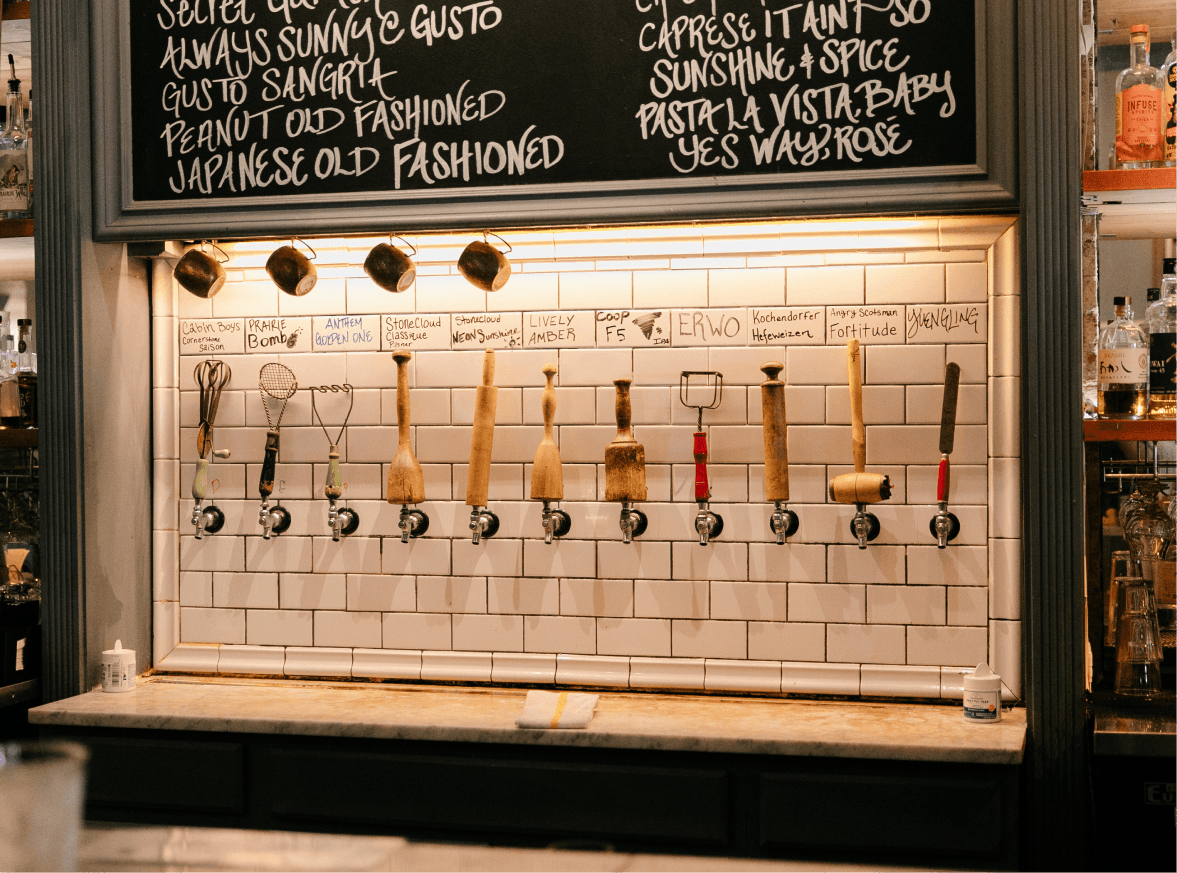 ALWAYS SUNNY C GUSTO
GUSTO SANGRIA
PEANUT OLD FASHIONED
JAPANESE OLD FASHIONED
CAPRESE IT AIN'T SO
SUNSHINE & SPICE
PASTA LA VISTA, BABY
YES WAY, ROSÉ
Cabin Boys
Cornerstone
Saison
PRAIRIE
Bomb
ANTHEM
GOLDEN ONE
StoneCloud
Classique
Pilsner
Stonecloud
NEON Sunshine
LIVELY
AMBER
COOP
F5
IPA
ERWO
Kochendorfer
Hefeweizen
Angry Scotsman
Fortitude
YUENGLING
INFUSE
SPIRITS